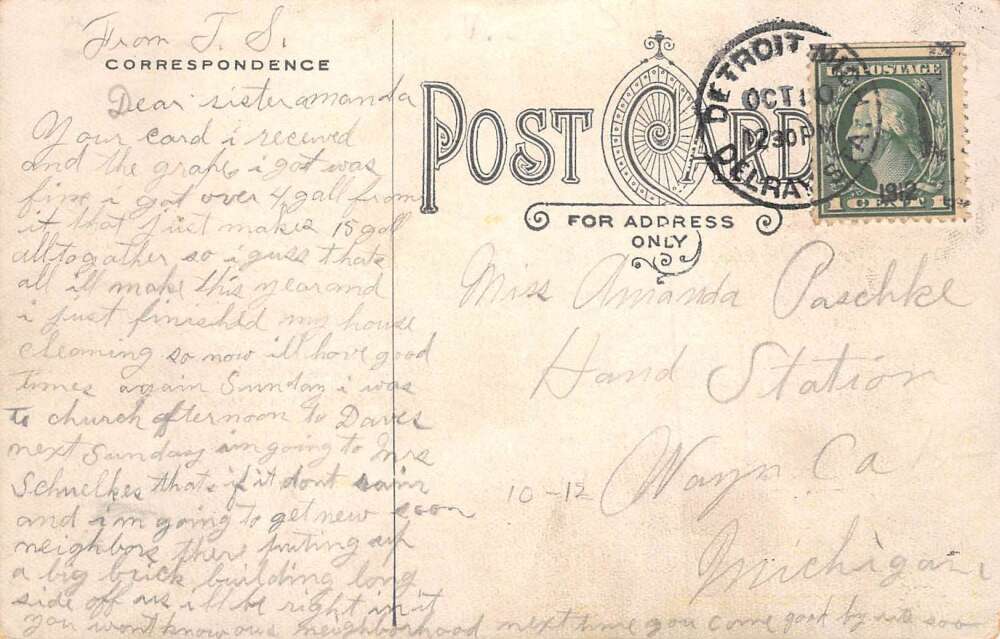 From T. S.
CORRESPONDENCE
Dear sister amanda
Your card i received
and the grape i got was
fine i got over 4 gall from
it that just makes 15 gall
alltogather so i guss thats
all ill make this year and
i just finished my house
cleaning so now ill have good
times again Sunday i was
to church afternoon to Daves
next Sunday im going to Mrs
Schuelkes thats if it dont rain
and i'm going to get new soon
neighbors there puting up
a big brick building long
side off us ill be right in it
you wont know our neighborhood next time you come good by write soon
POST CARD
FOR ADDRESS
ONLY
DETROIT, MICH.
OCT 10
1230 PM
DELRAY STA.
1912
U.S. POSTAGE
1 CENT 1
Miss Amanda Paschke
Hand Station
Wayn Co
10-12
Michigan